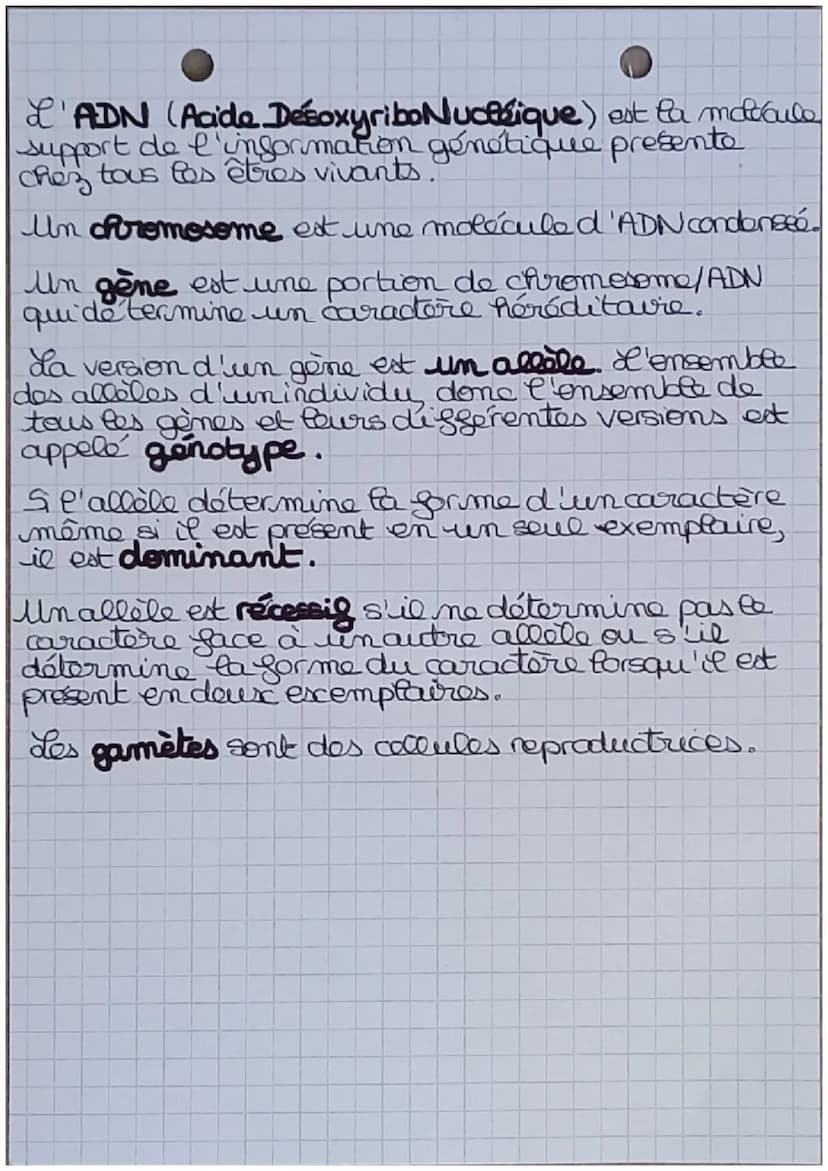 L'ADN (Acide DésoxyriboNucléique) est la molécule
support de l'information génétique présente
chez tous les êtres vivants.
Un chromosome est une molécule d'ADN condensée.
Un gène est une portion de chromosome/ADN
qui détermine un caractère héréditaire.
La version d'un gène est un allèle. L'ensemble
des allèles d'un individu, donc l'ensemble de
tous les gènes et leurs différentes versions est
appelé génotype.
Si l'allèle détermine la forme d'un caractère
même si il est présent en un seul exemplaire,
il est dominant.
Un allèle est récessif s'il ne détermine pas le
caractère face à un autre allèle ou s'il
détermine la forme du caractère lorsqu'il est
présent en deux excemplaires.
Les gamètes sont des cellules reproductrices.